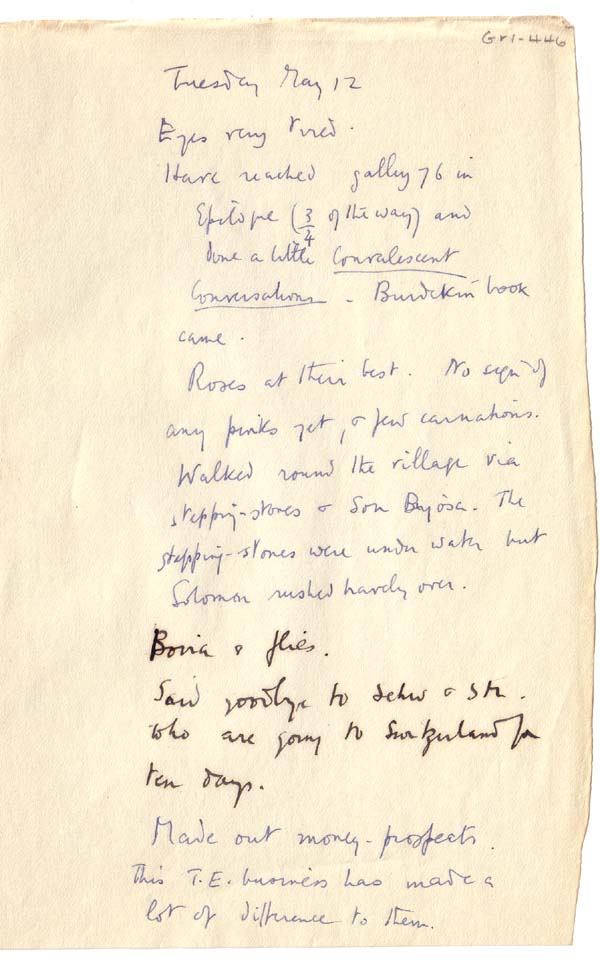 Gr1-446
Tuesday May 12
Eyes very tired.
Have reached galley 76 in
Epilogue (3/4 of the way) and
done a little Convalescent
Conversations - Burdekin book
came.
Roses at their best. No sign of
any pinks yet, & few carnations.
Walked round the village via
stepping-stones & Son Bajosa. The
stepping-stones were under water but
Solomon rushed bravely over.
& flies.
Said goodbye to &
who are going to Switzerland for
ten days.
Made out money-prospects.
This T.E. business has made a
lot of difference to them.